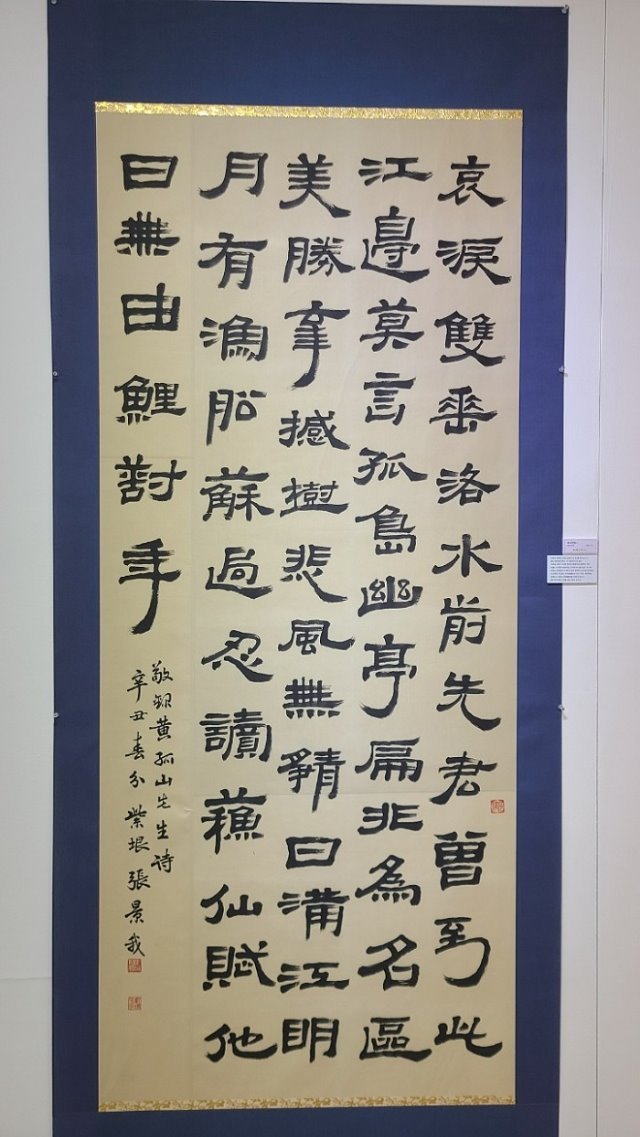 哀淚雙垂洛水前先君曾到此
江邊莫言孤島幽亭扁非為名區
美勝牽撼樹悲風無靜日滿江明
月有漁船蘇過忍讀蘓仙賦他
日無由鯉對年
敬錄黃孤山先生诗
辛丑春分 紫垠張景我